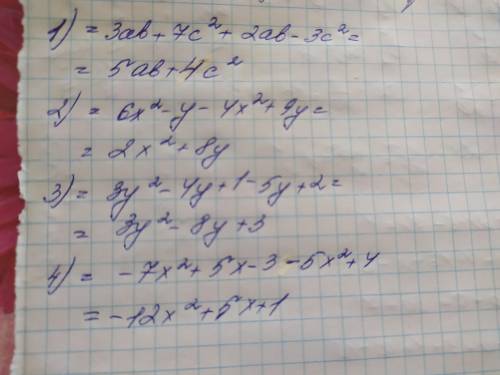 1) = 3ab + 7c² + 2ab - 3c² =
= 5ab + 4c²
2) = 6x² - y - 4x² + 9y =
= 2x² + 8y
3) = 3y² - 4y + 1 - 5y + 2 =
= 3y² - 8y + 3
4) = -7x² + 5x - 3 - 5x² + 4
= -12x² + 5x + 1